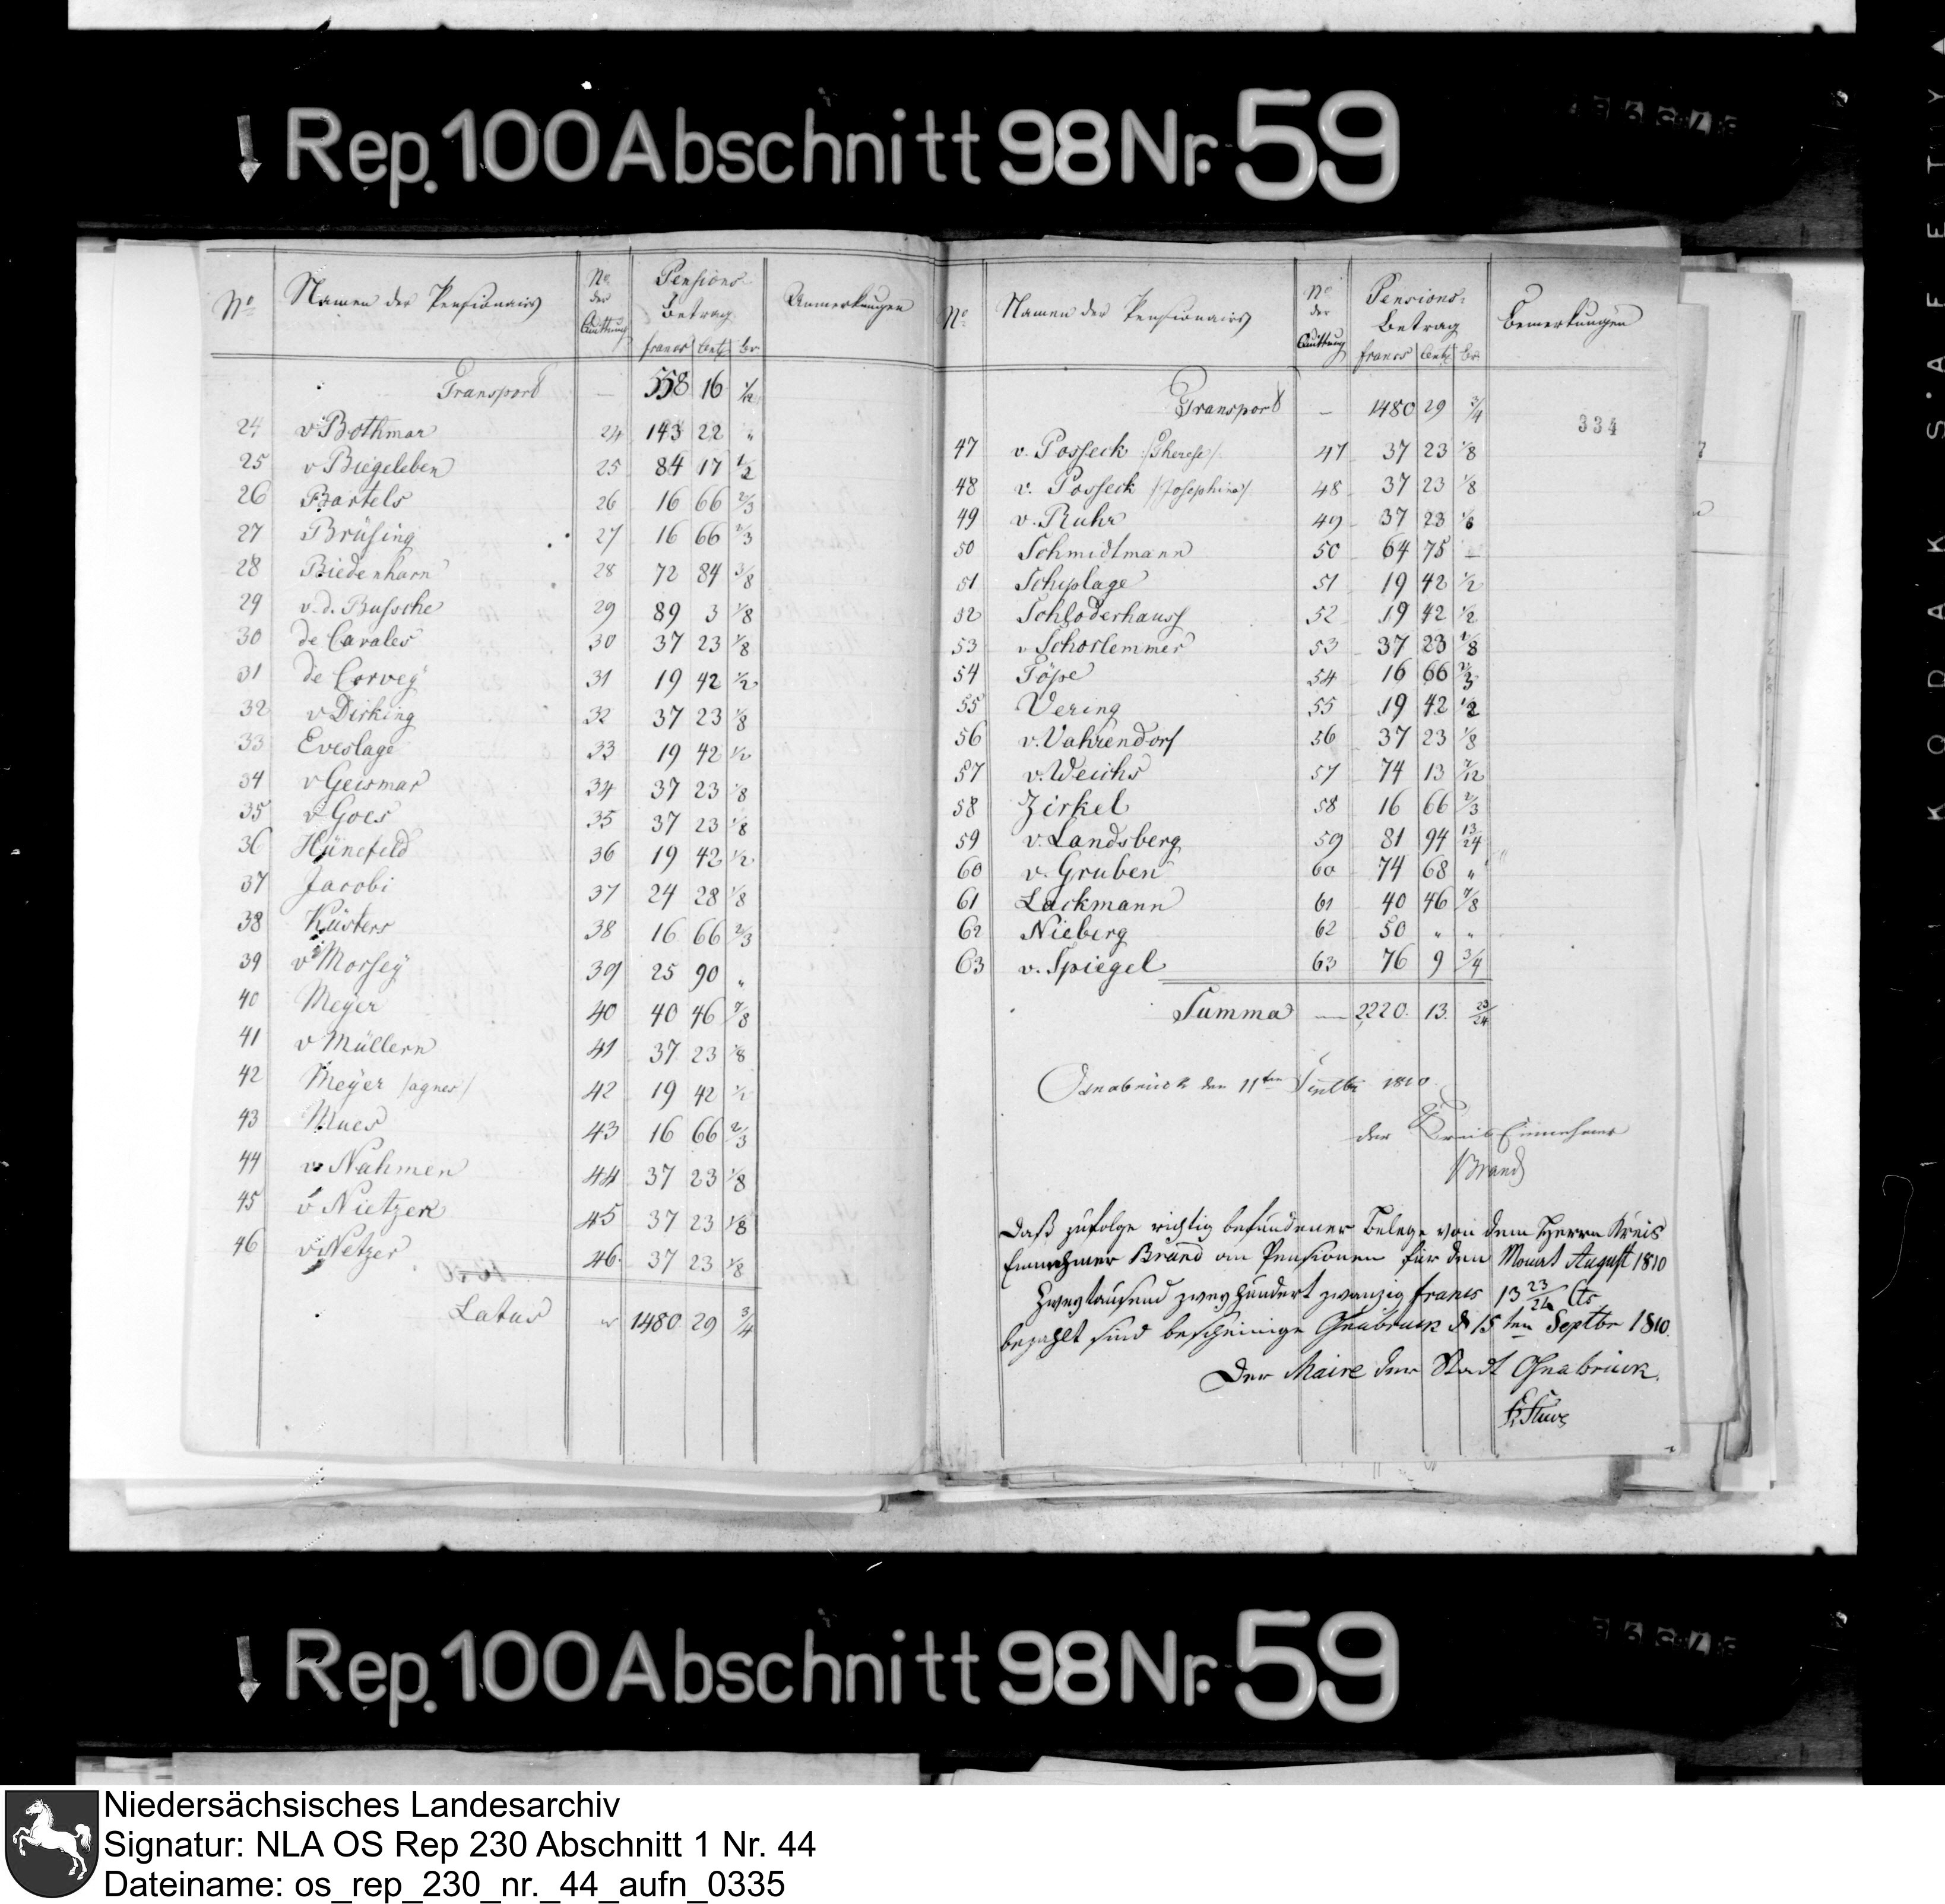 Rep. 100 Abschnitt 98 Nr. 59
No Namen der Pensionairs No der Quittung Pensions- Betrag francs Cent Br Anmerkungen
Transport — 558 16 1/2
24 v Bothmar 24 143 22 "
25 v Biegeleben 25 84 17 1/2
26 Bartels 26 16 66 2/3
27 Brüsing 27 16 66 2/3
28 Biedenharn 28 72 84 3/8
29 v. d. Bussche 29 89 3 1/8
30 de Carales 30 37 23 1/8
31 de Corveÿ 31 19 42 1/2
32 v Dirking 32 37 23 1/8
33 Eveslage 33 19 42 1/2
34 v Geismar 34 37 23 1/8
35 v Goes 35 37 23 1/8
36 Hünefeld 36 19 42 1/2
37 Jacobi 37 24 28 1/8
38 Küsters 38 16 66 2/3
39 v Morseÿ 39 25 90 "
40 Meÿer 40 40 46 7/8
41 v Müllern 41 37 23 1/8
42 Meÿer /agnes/ 42 19 42 1/2
43 Mues 43 16 66 2/3
44 v Nahmen 44 37 23 1/8
45 v Nietzer 45 37 23 1/8
46 v Netzer 46 37 23 1/8
Latus 1480 29 3/4
No Namen der Pensionairs No der Quittung Pensions- Betrag francs Cent Br Bemerkungen
Transport — 1480 29 3/4
334
47 v. Posseck /Therese/ 47 37 23 1/8
48 v. Posseck /Josephina/ 48 37 23 1/8
49 v. Ruhr 49 37 23 1/8
50 Schmidtmann 50 64 75 —
51 Scheplage 51 19 42 1/2
52 Schloderhaus 52 19 42 1/2
53 v Schorlemmer 53 37 23 1/8
54 Töpe 54 16 66 2/3
55 Vering 55 19 42 1/2
56 v. Vahrendorf 56 37 23 1/8
57 v. Weichs 57 74 13 7/12
58 Zirkel 58 16 66 2/3
59 v. Landsberg 59 81 94 13/24
60 v. Gruben 60 74 68 "
61 Lackmann 61 40 46 7/8
62 Nieberg 62 50 " "
63 v. Spiegel 63 76 9 3/4
Summa — 2220. 13. 23/24
Osnabrück den 11ten Septbr 1810.
der Kreis Einnehmer
Brand
Daß zufolge richtig befundener Belege von dem Herrn Kreis
Einnehmer Brand an Pensionen für den Monat August 1810
Zweytausend zweyhundert zwanzig francs 13 23/24 Cts
bezahlt sind bescheinige Osnabruck d 15ten Septbr 1810.
Der Maire der Stadt Osnabrück.
Stuve
Rep. 100 Abschnitt 98 Nr. 59
KODAK SAFETY
Niedersächsisches Landesarchiv
Signatur: NLA OS Rep 230 Abschnitt 1 Nr. 44
Dateiname: os_rep_230_nr._44_aufn_0335